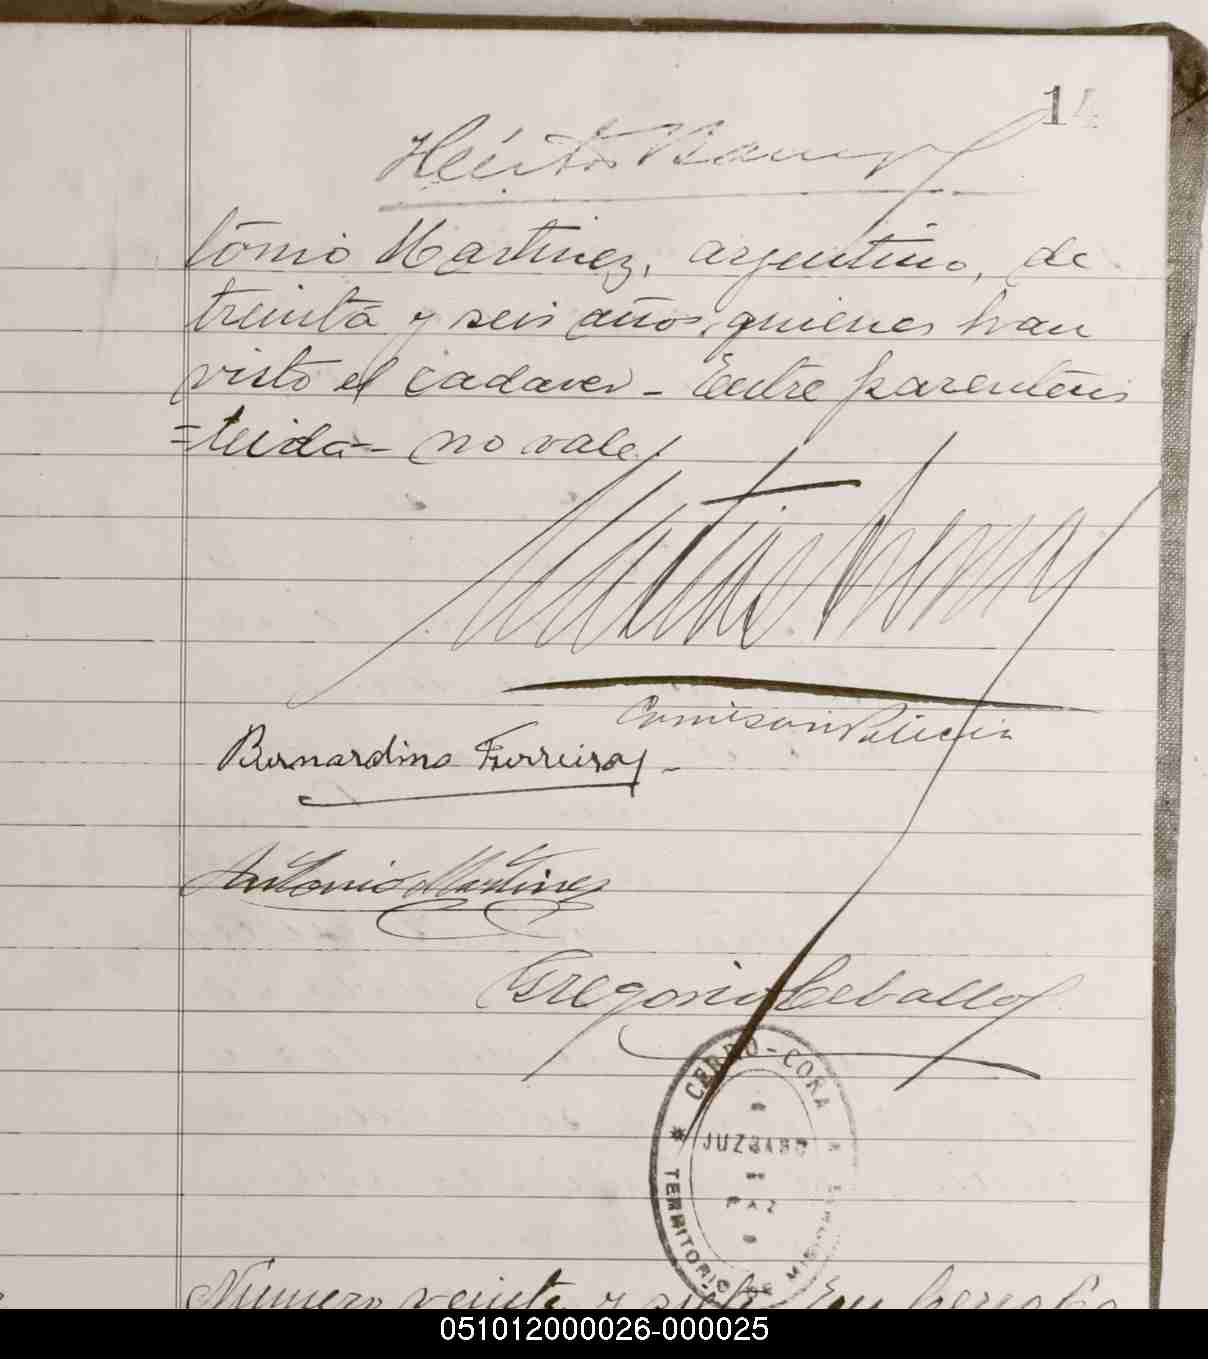 14
Héctor Barny
tonio Martinez, argentino, de
treinta y seis años, quienes han
visto el cadaver - Entre parentesis
=teida=- no vale.
Matias
Comisario Policia
Bernardino Ferreira -
Antonio Martinez
Gregorio Ceballos
CERRO-CORA
JUZGADO
PAZ
TERRITORIO DE MISIONES
Número veinte y siete En Cerro Cora
051012000026-000025